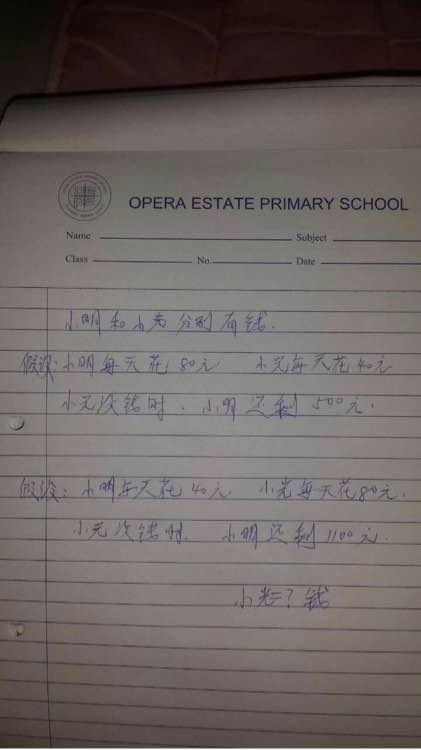 OPERA ESTATE PRIMARY SCHOOL
Name Subject
Class No. Date
小明和小光分别有钱.
假设:小明每天花80元 小光每天花40元
小光没钱时.小明还剩500元.
假设:小明每天花40元 小光每天花80元.
小光没钱时 小明还剩1100元.
小光=?钱